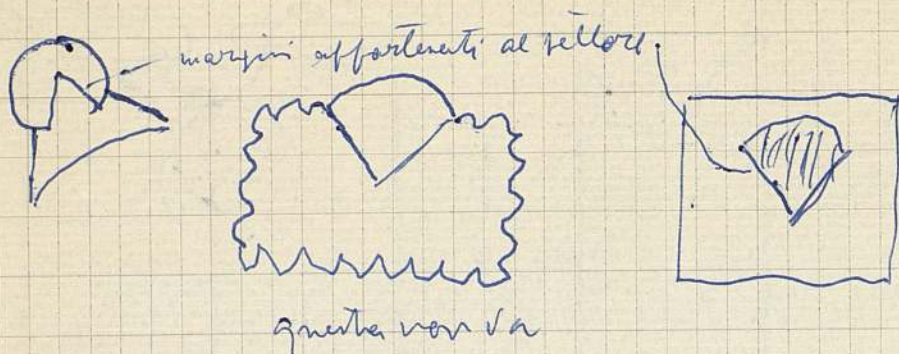 margini appartenenti al settore.
questa non va